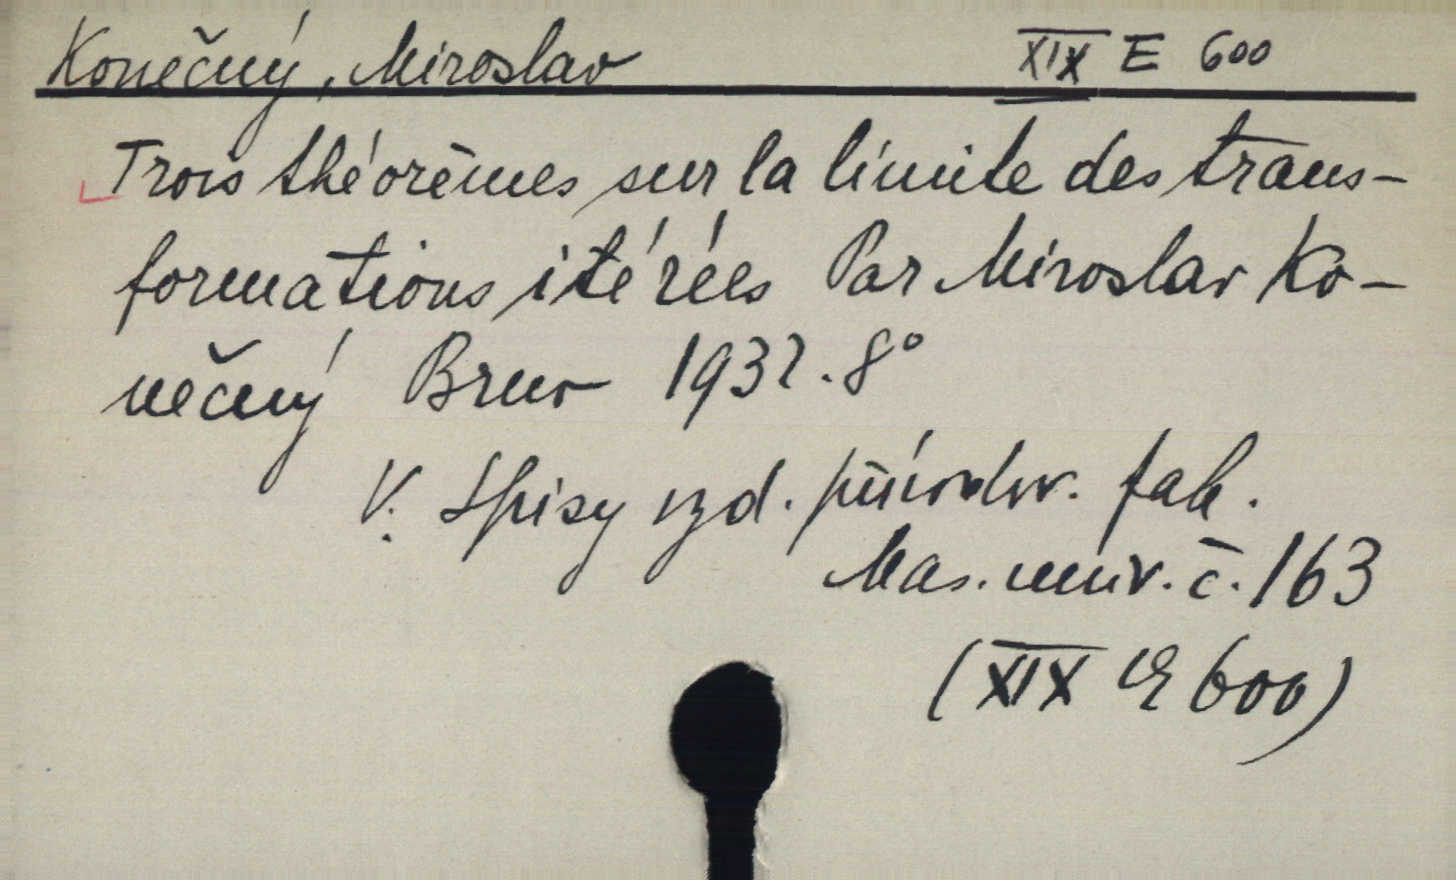 Konečný, Miroslav XIX E 600
Trois théorèmes sur la limite des trans-
formations itérées Par Miroslav Ko-
nečný Brno 1932. 8°
V. Spisy vyd. přírodov. fak.
Mas. univ. č. 163
(XIX E 600)